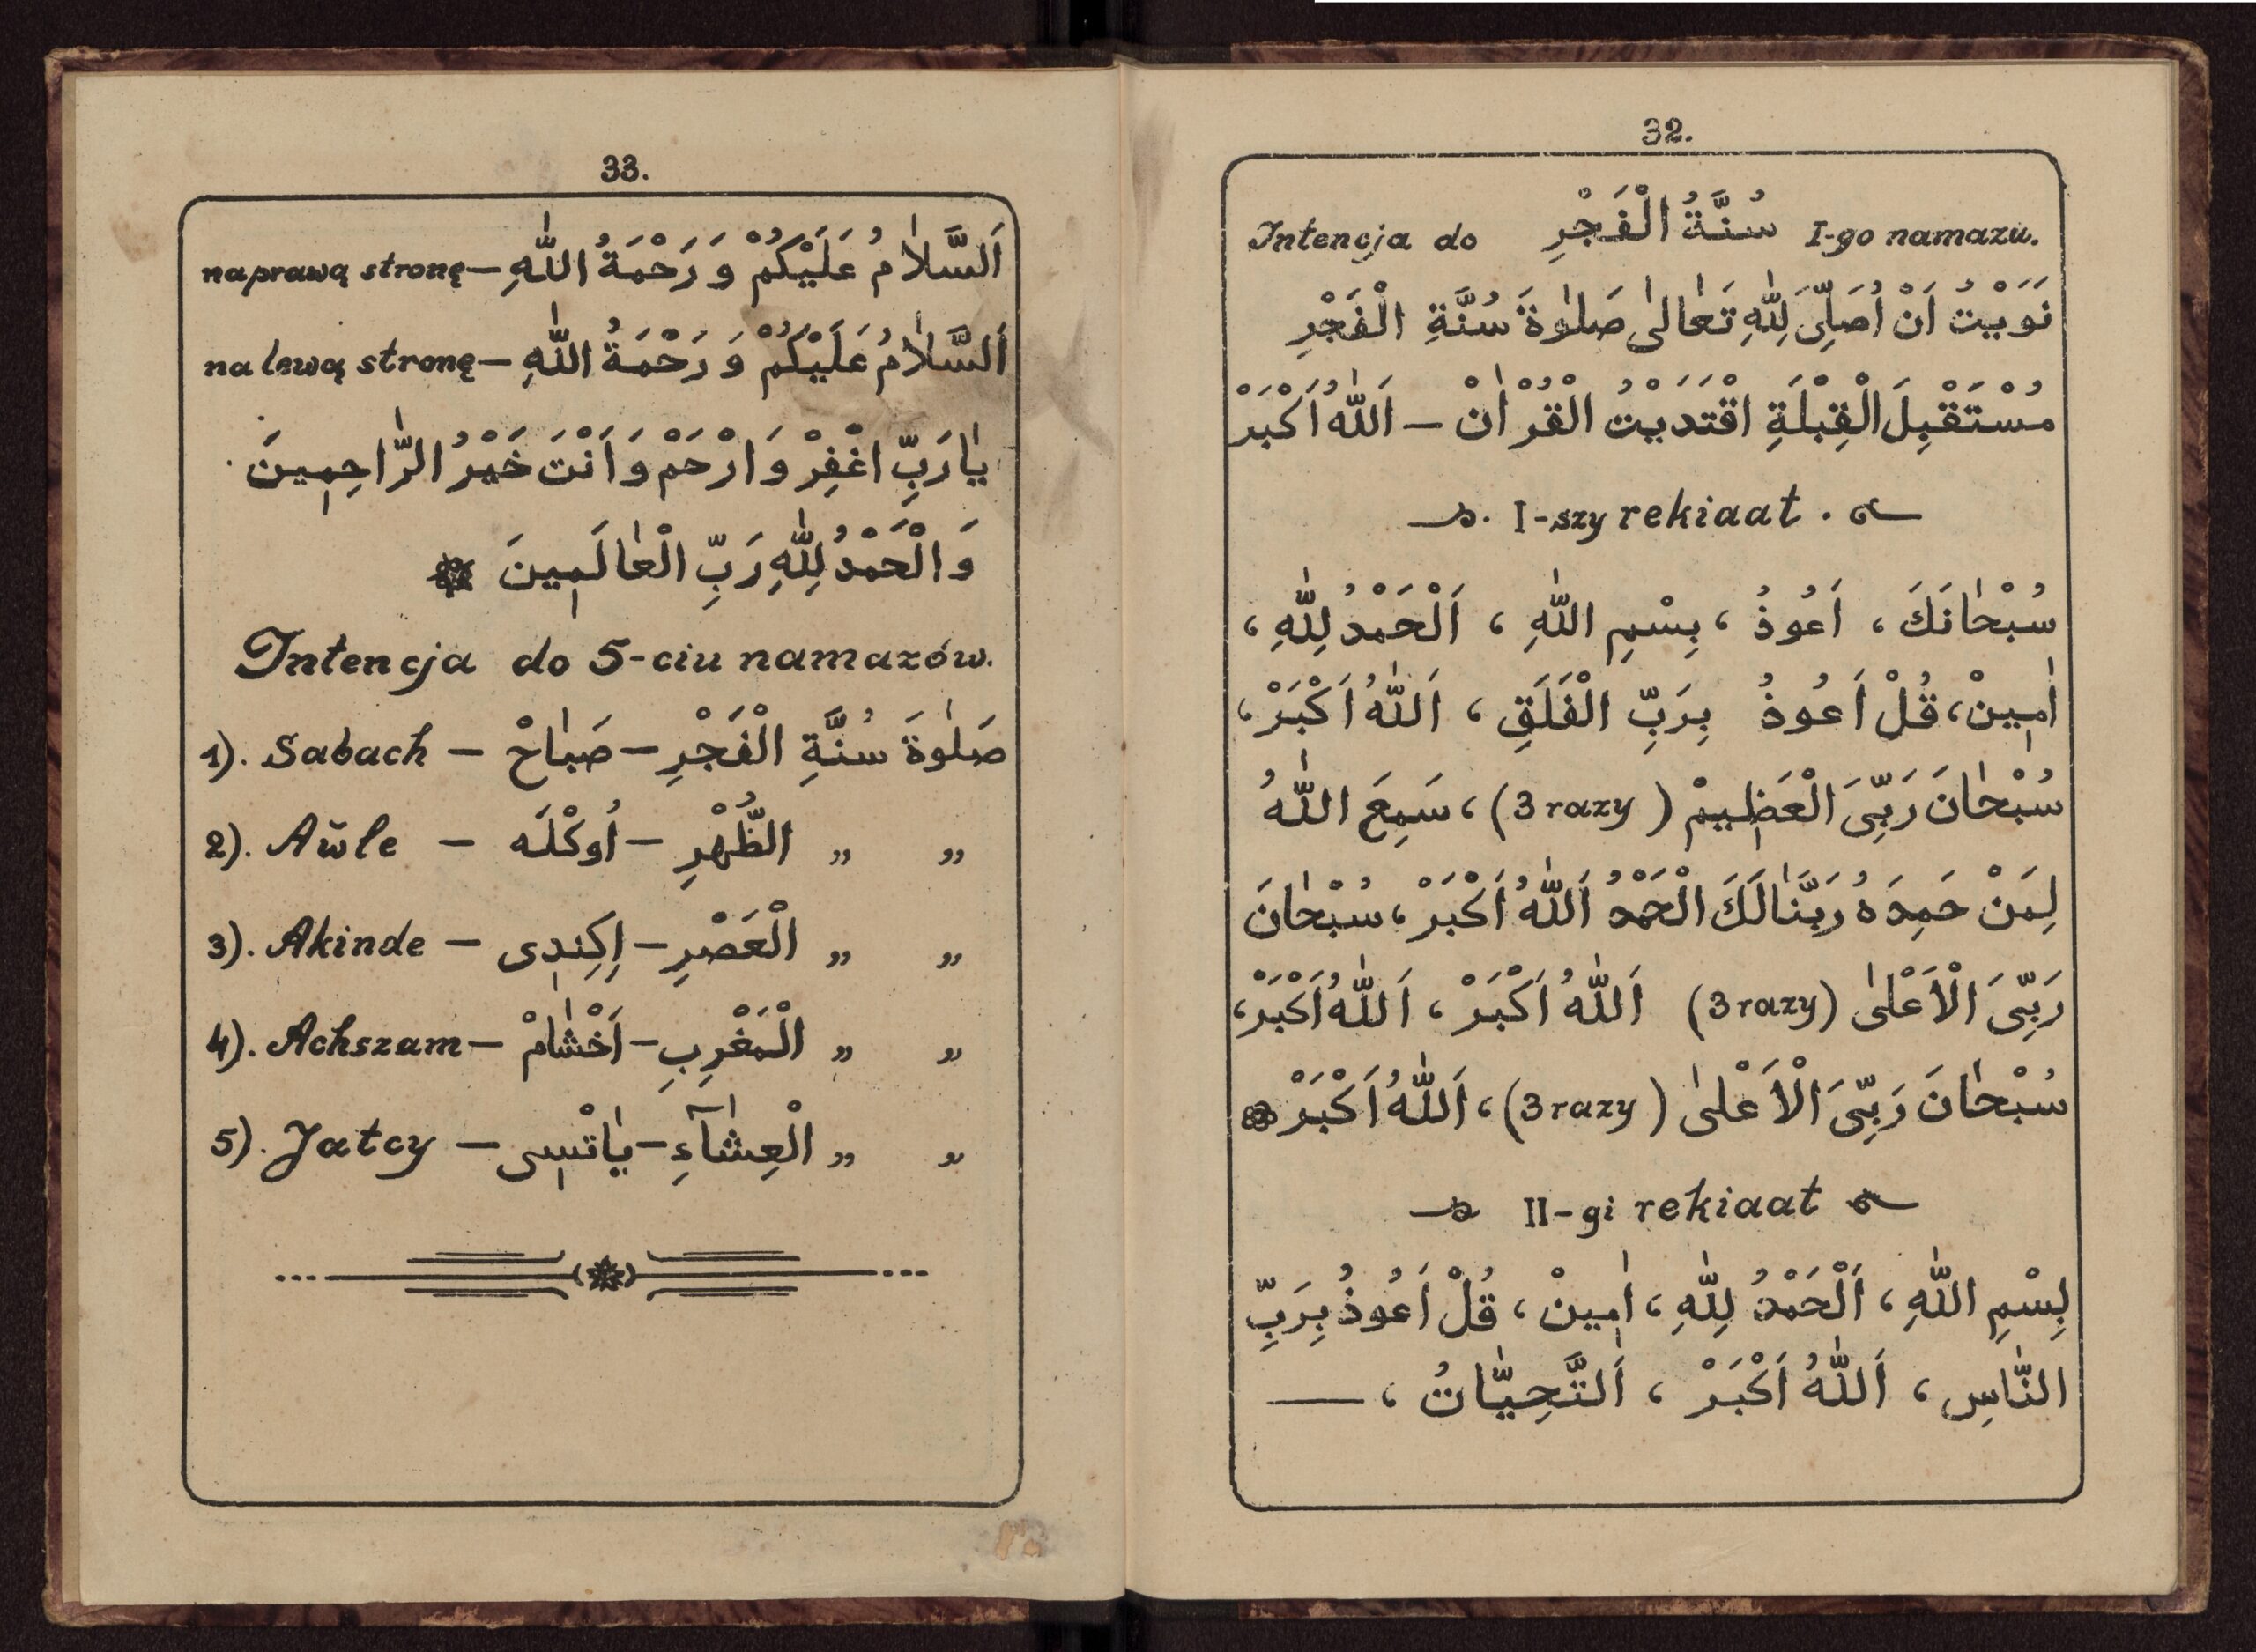 32.
Intencja do سُنَّةُ الْفَجْرِ I-go namazu.
نَوَيْتُ اَنْ اُصَلِّىَ لِلّٰهِ تَعٰالىٰ صَلٰوةَ سُنَّةِ الْفَجْرِ
مُسْتَقْبِلَ الْقِبْلَةِ اقْتَدَيْتُ الْقُرْاٰنْ — اَللّٰهُ اَكْبَرْ
I-szy rekiaat.
سُبْحٰانَكَ ، اَعُوذُ ، بِسْمِ اللّٰهِ ، اَلْحَمْدُ لِلّٰهِ ،
اٰمِينْ ، قُلْ اَعُوذُ بِرَبِّ الْفَلَقِ ، اَللّٰهُ اَكْبَرْ ،
سُبْحٰانَ رَبِّىَ الْعَظِيمْ (3 razy) ، سَمِعَ اللّٰهُ
لِمَنْ حَمِدَهُ رَبَّنٰا لَكَ الْحَمْدُ اَللّٰهُ اَكْبَرْ ، سُبْحٰانَ
رَبِّىَ الْاَعْلىٰ (3 razy) اَللّٰهُ اَكْبَرْ ، اَللّٰهُ اَكْبَرْ ،
سُبْحٰانَ رَبِّىَ الْاَعْلىٰ (3 razy) ، اَللّٰهُ اَكْبَرْ
II-gi rekiaat
بِسْمِ اللّٰهِ ، اَلْحَمْدُ لِلّٰهِ ، اٰمِينْ ، قُلْ اَعُوذُ بِرَبِّ
النّٰاسِ ، اَللّٰهُ اَكْبَرْ ، اَلتَّحِيّٰاتُ ، —
33.
اَلسَّلاٰمُ عَلَيْكُمْ وَ رَحْمَةُ اللّٰهِ — na prawą stronę
اَلسَّلاٰمُ عَلَيْكُمْ وَ رَحْمَةُ اللّٰهِ — na lewą stronę
يٰا رَبِّ اغْفِرْ وَ ارْحَمْ وَ اَنْتَ خَيْرُ الرّٰاحِمِينَ
وَ الْحَمْدُ لِلّٰهِ رَبِّ الْعٰالَمِينَ
Intencja do 5-ciu namazów.
1). Sabach — صَلٰوةَ سُنَّةِ الْفَجْرِ — صَبٰاحْ
2). Aŭle — „ „ الظُّهْرِ — اُوكْلَه
3). Akinde — „ „ الْعَصْرِ — اِكِندِى
4). Achszam — „ „ الْمَغْرِبِ — اَخْشٰامْ
5). Jatcy — „ „ الْعِشٰآءِ — يٰاتْسِى